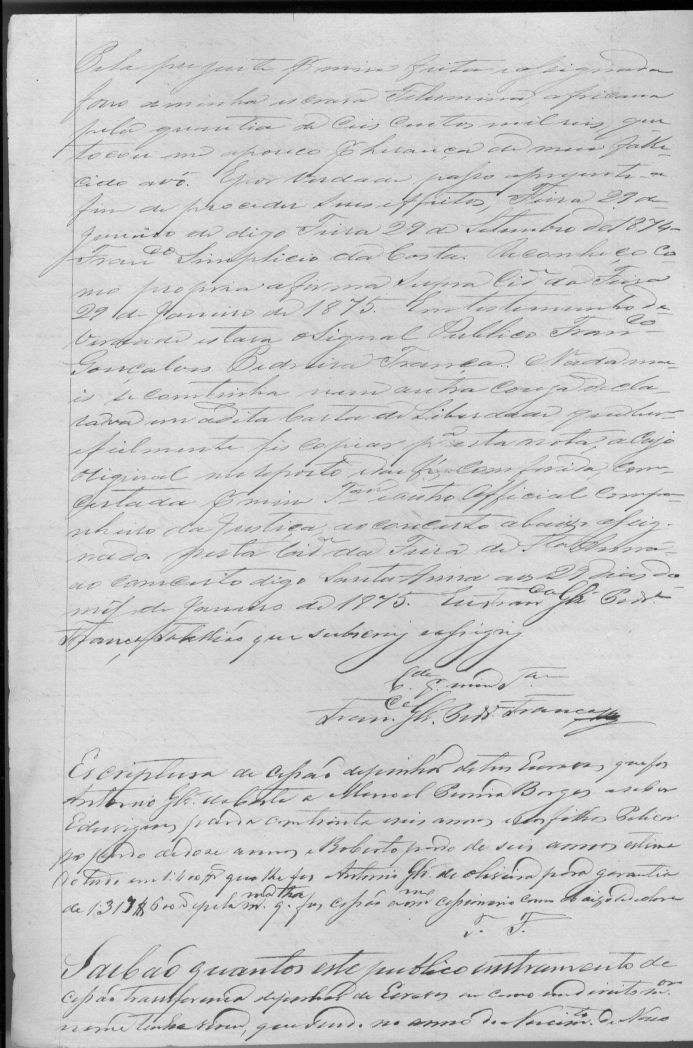 Pela prezente por mim feita e assignada
forro a minha escrava Filomena, africana
pela quantia de seis centos mil reis, que
tocou me a pouco por herança de meu falle-
cido avô. E por verdade passo a prezente a
fim de proceder seus effeitos, Feira 29 de
Janeiro de digo Feira 29 de Setembro de 1874
Fran.co Simplicio da Costa. Reconheço co-
mo propria a firma supra Cid.e da Feira
29 de Janeiro de 1875. Em testemunho de
verdade estava o signal Publico Fran.co
Gonçalves Pedreira França. Nada ma-
is se continha nem outra couza decla-
rava em a dita Carta de Liberdade que bem
e fielmente fis copiar p.a esta nota, a cujo
original me reporto, com
certada por mim T.am e outro Official compa-
nheiro da Justiça, ao concerto abaixo assig-
nado. Nesta Cid.e da Feira de S.ta Anna
ao concerto digo Santa Anna aos 29 dias do
mes de Janeiro de 1875. Eu Fran.co Glz Pedr.a
França, Tabellião que subscrevi e assignei
C.de p. mim T.am
Fran.co Glz. Pedr.a França
Escriptura de cessão de penhor de tres Escravos, que faz
Antonio Glz. a Manoel Pereira Borges a saber
Eduviges, parda com trinta e seis annos e os filhos
pardo de dose annos e Roberto pardo de seis annos
do tudo em 1:400$ que lhe fes Antonio Glz. de Oliveira para garantia
de 1:317$600 e pela m.ma q. fas cessão ao mesmo cessionario como abaixo se declara
T. F.
Saibão quantos este publico instrumento de
cessão transferencia de penhor de Escravos ou como em direito
nome tenha virem, que sendo no anno do Nascim.to de Nosso